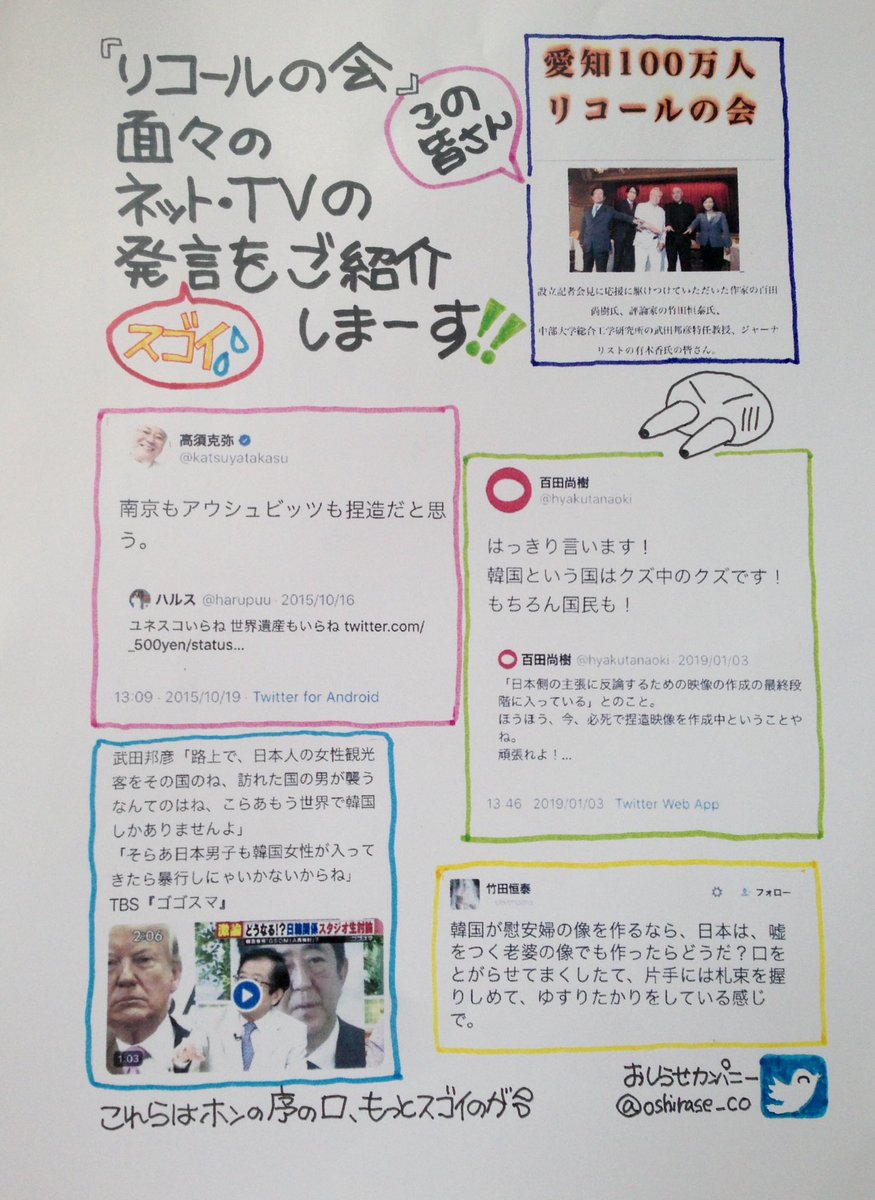 『リコールの会』
面々の
ネット・TVの
発言をご紹介
しまーす!!
スゴイ
この
皆さん
愛知100万人
リコールの会
設立記者会見に応援に駆けつけていただいた作家の百田
尚樹氏、評論家の竹田恒泰氏、
中部大学総合工学研究所の武田邦彦特任教授、ジャーナ
リストの有本香氏の皆さん。
高須克弥
@katsuyatakasu
南京もアウシュビッツも捏造だと思
う。
ハルス @harupuu · 2015/10/16
ユネスコいらね 世界遺産もいらね twitter.com/
_500yen/status...
13:09 · 2015/10/19 · Twitter for Android
百田尚樹
@hyakutanaoki
はっきり言います!
韓国という国はクズ中のクズです!
もちろん国民も!
百田尚樹 @hyakutanaoki · 2019/01/03
「日本側の主張に反論するための映像の作成の最終段
階に入っている」とのこと。
ほうほう、今、必死で捏造映像を作成中ということや
ね。
頑張れよ!...
13 46 2019/01/03 Twitter Web App
武田邦彦「路上で、日本人の女性観光
客をその国のね、訪れた国の男が襲う
なんてのはね、こらあもう世界で韓国
しかありませんよ」
「そらあ日本男子も韓国女性が入って
きたら暴行しにゃいかないからね」
TBS『ゴゴスマ』
2:06
激論 どうなる!?日韓関係スタジオ生討論
1:03
竹田恒泰
フォロー
韓国が慰安婦の像を作るなら、日本は、嘘
をつく老婆の像でも作ったらどうだ?口を
とがらせてまくしたて、片手には札束を握
りしめて、ゆすりたかりをしている感じ
で。
これらはホンの序の口、もっとスゴイのが
おしらせカンパニー
@oshirase_co